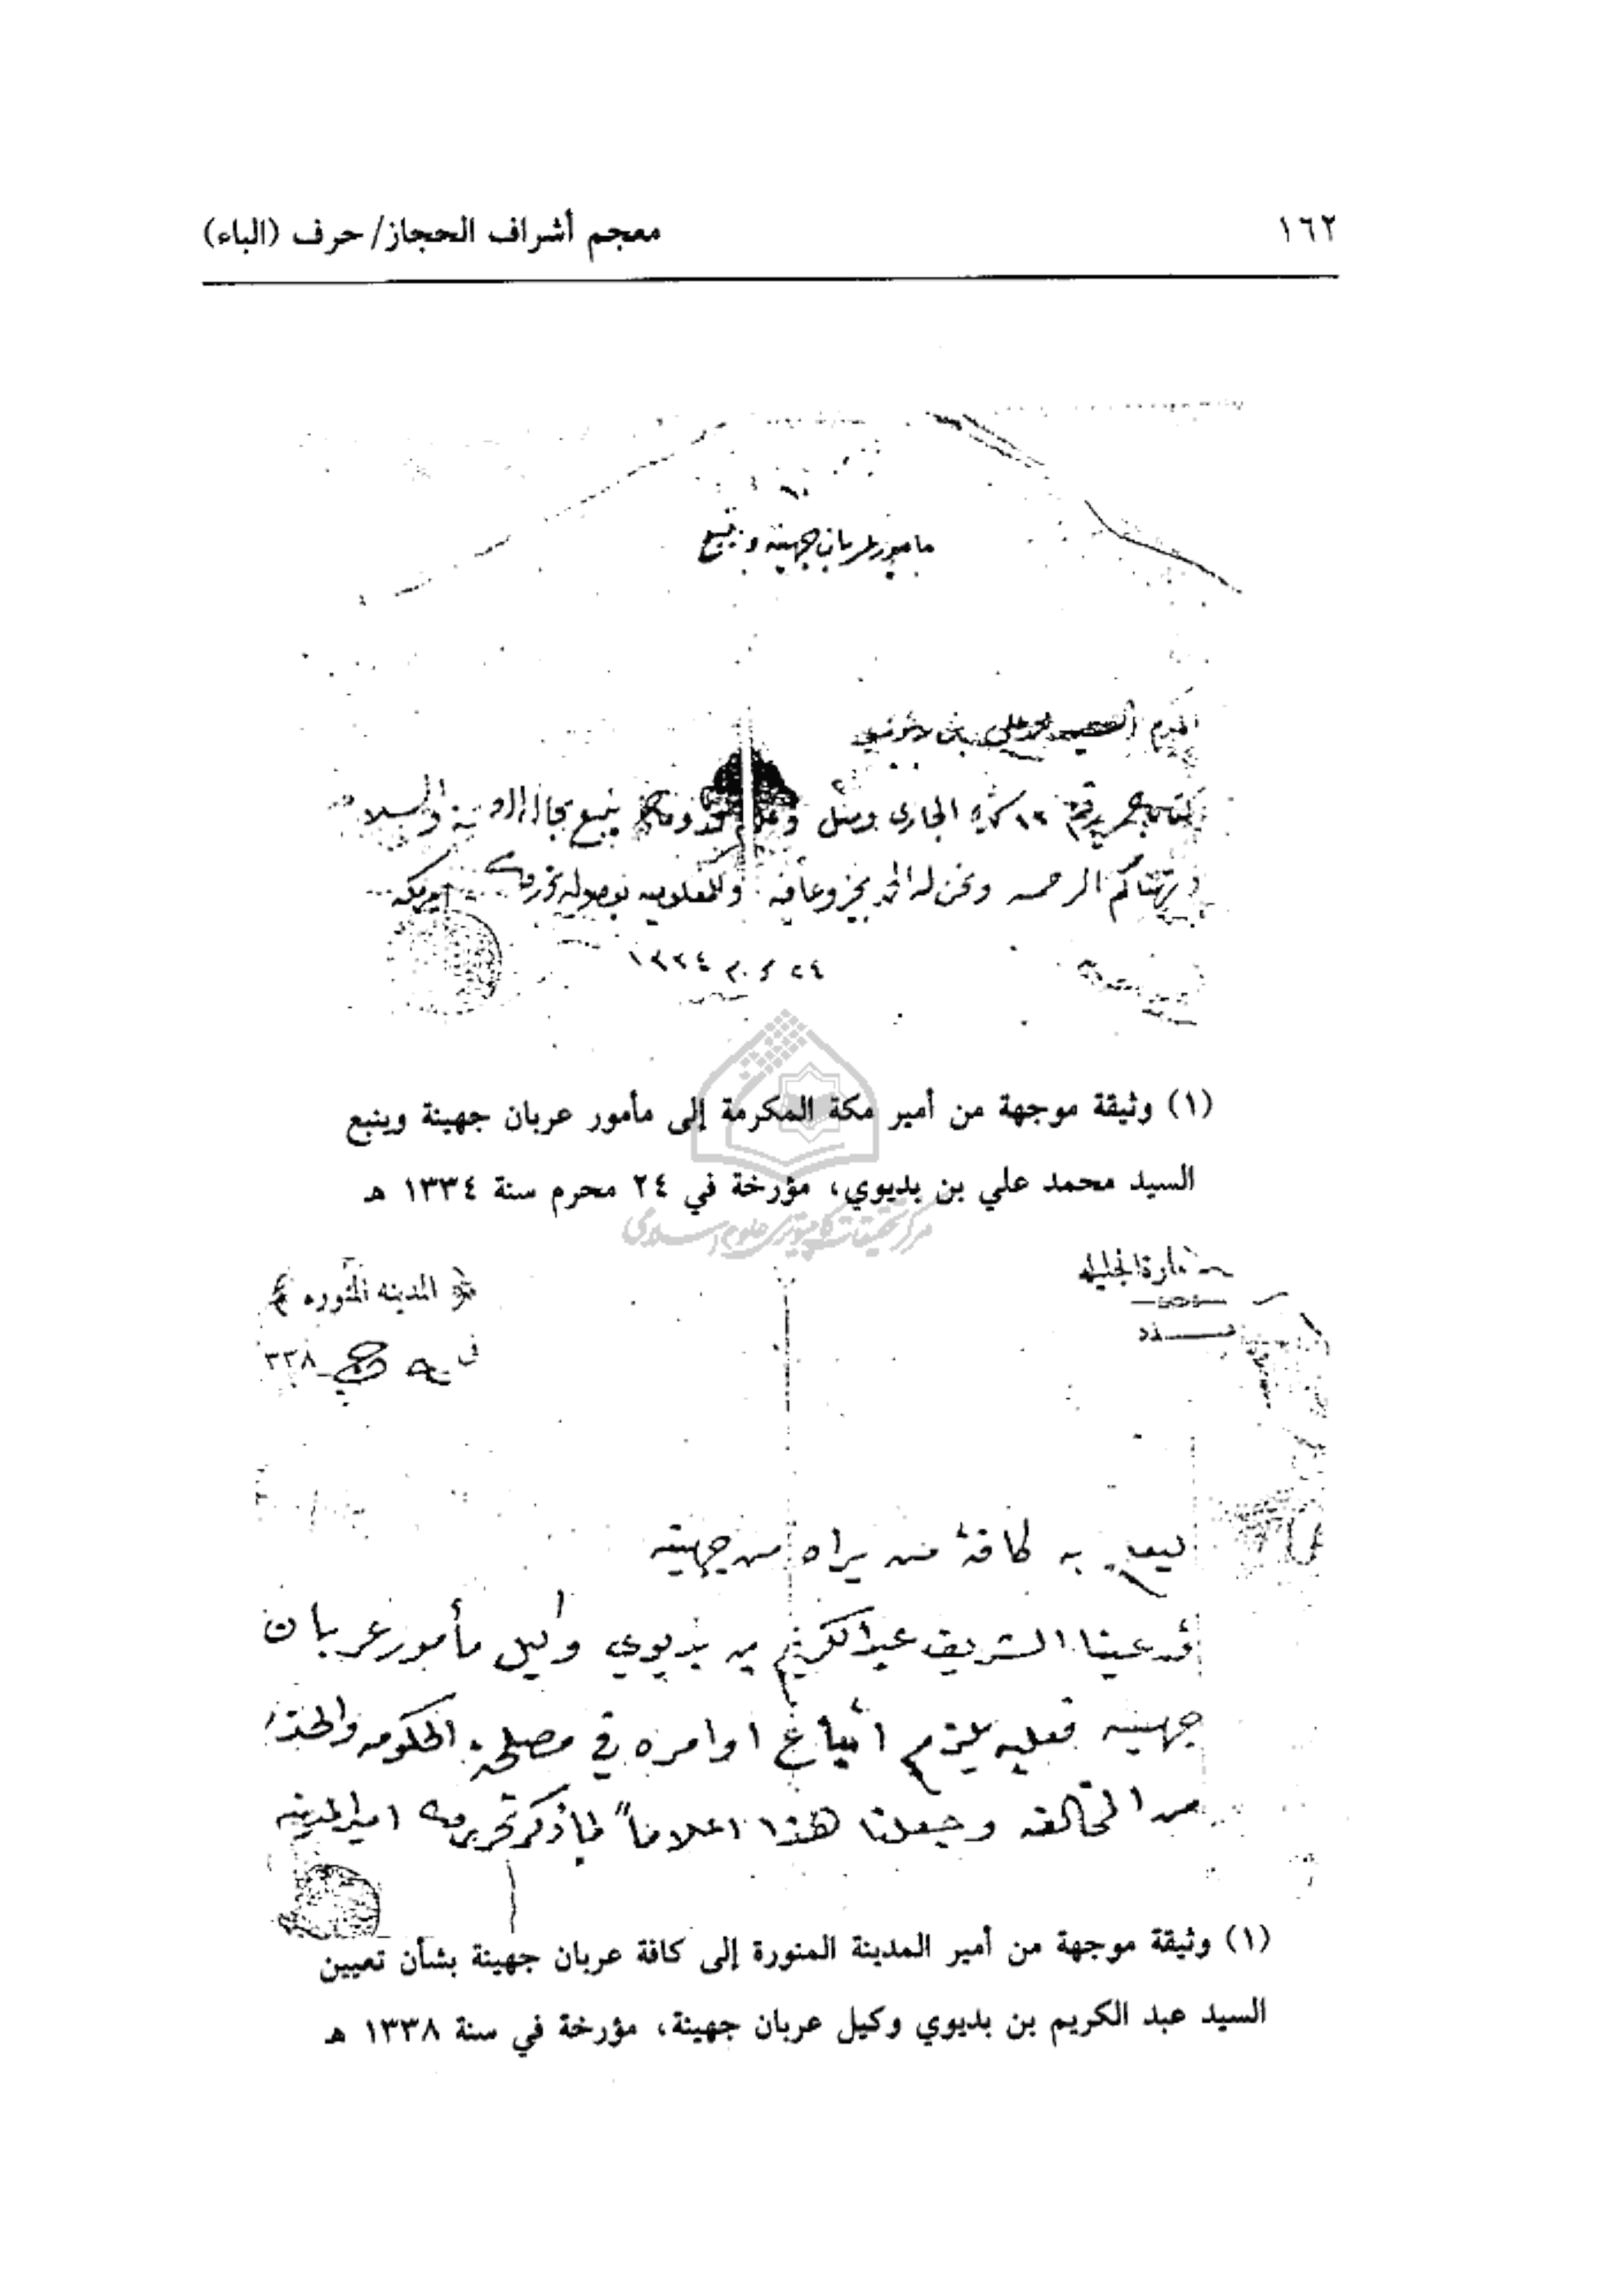 ١٦٢
معجم أشراف الحجاز/ حرف (الباء)
مامور عربان جهينه وينبع
السيد محمد علي بن
الجاري وصل ينبع والسلام
الرحمه ونحن لله الحمد بخير وعافيه وللمعلوميه بوصوله تحرر
١٣٣٤
(١) وثيقة موجهة من أمير مكة المكرمة إلى مأمور عربان جهينة وينبع
السيد محمد علي بن بديوي، مؤرخة في ٢٤ محرم سنة ١٣٣٤ هـ
مركز تحقيقات كامپيوتري علوم اسلامي
المدينه المنوره
في ٣٣٨
عدد
يعلم به كافة من يراه من جهينه
قد عينا الشريف عبدالكريم بن بديوي وكيل مأمور عربان
جهينه فعليه يلزم اتباع اوامره في مصلحة الحكومه والحذر
من المخالفه وجعلنا هذا اعلاماً لما ذكر تحريره امير المدينه
(١) وثيقة موجهة من أمير المدينة المنورة إلى كافة عربان جهينة بشأن تعيين
السيد عبد الكريم بن بديوي وكيل عربان جهينة، مؤرخة في سنة ١٣٣٨ هـ